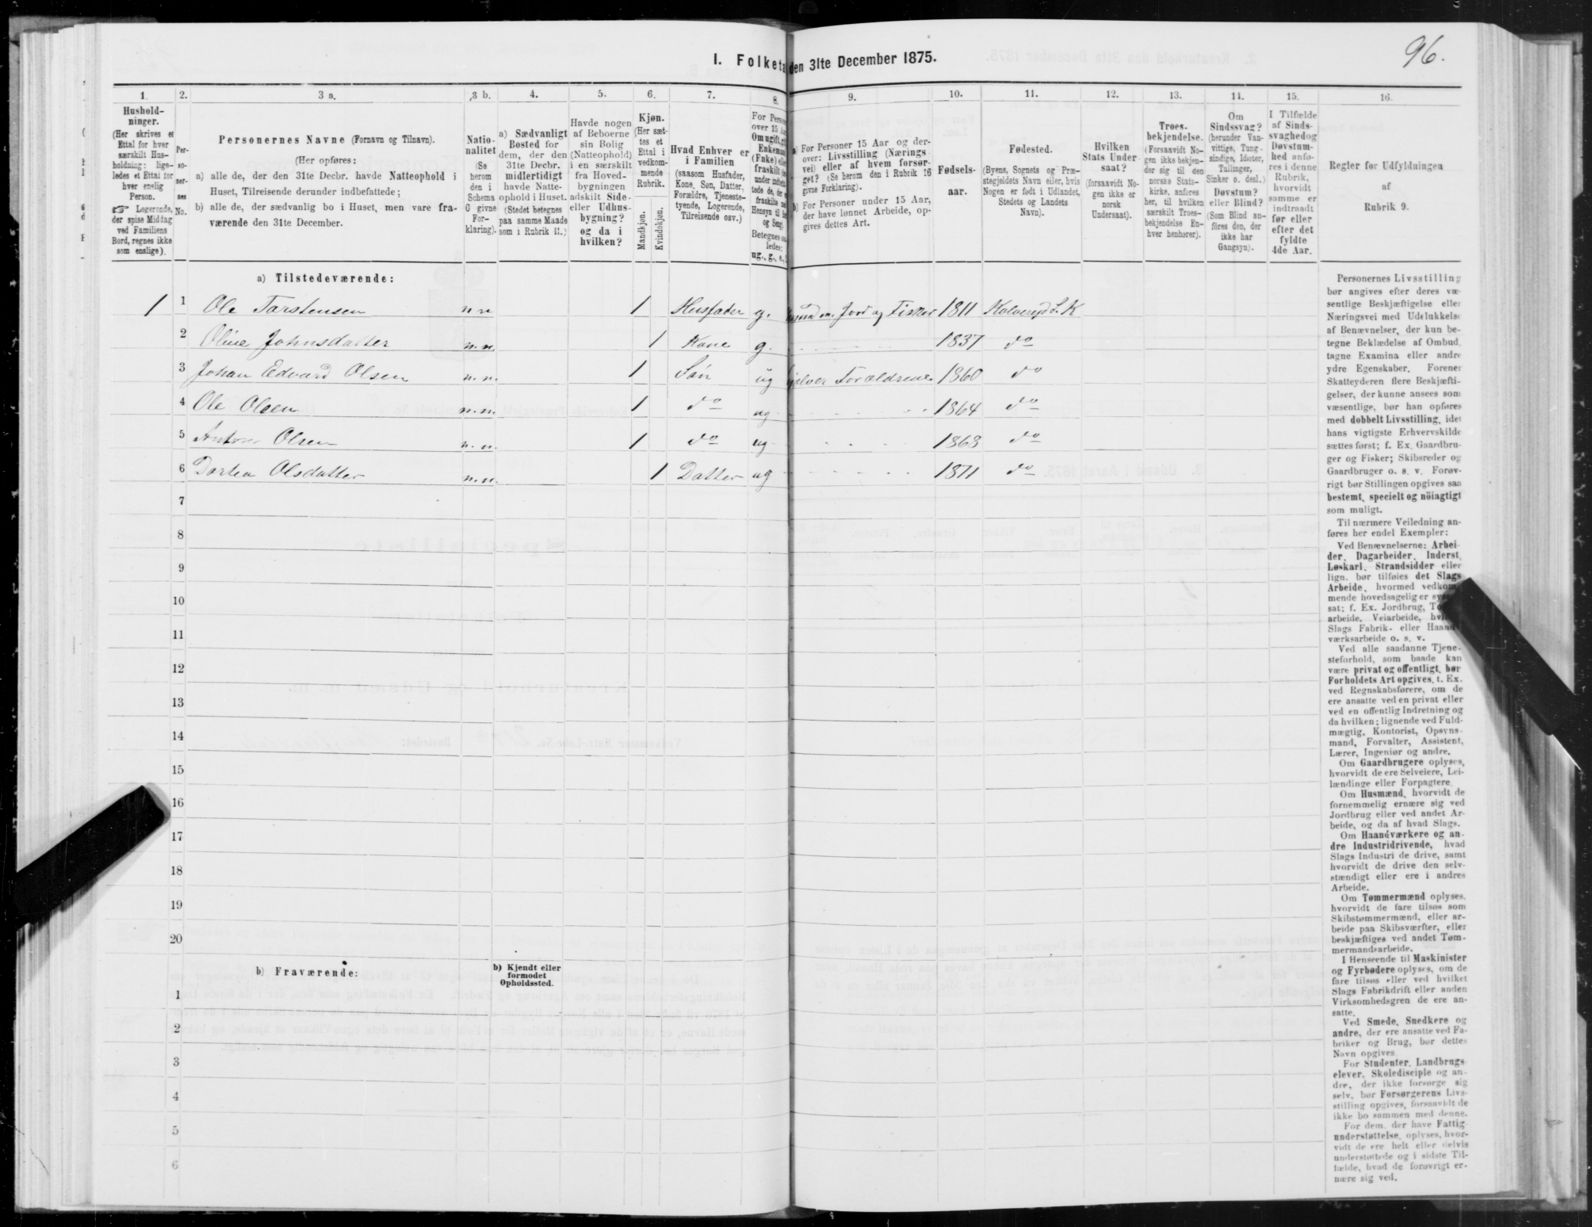 96.
I. Folketæ den 31te December 1875.
1. 2. 3 a. 3 b. 4. 5. 6. 7. 8. 9. 10. 11. 12. 13. 14. 15. 16.
Hushold-
ninger.
(Her skrives et
Ettal for hver
særskilt Hus-
holdning; lige-
ledes et Ettal for
hver enslig
Person.
☞ Logerende,
der spise Middag
ved Familiens
Bord, regnes ikke
som enslige).
Per-
so-
ner-
nes
No.
Personernes Navne (Fornavn og Tilnavn).
(Her opføres:
a) alle de, der den 31te Decbr. havde Natteophold i
Huset, Tilreisende derunder indbefattede;
b) alle de, der sædvanlig bo i Huset, men vare fra-
værende den 31te December.
Natio-
nalitet
(Se
herom
den i
Schema
6 givne
For-
klaring).
a) Sædvanligt
Bosted for
dem, der den
31te Decbr.
midlertidigt
havde Natte-
ophold i Huset.
(Stedet betegnes
paa samme Maade
som i Rubrik 11.)
Havde nogen
af Beboerne
sin Bolig
(Natteophold)
i en særskilt
fra Hoved-
bygningen
adskilt Side-
eller Udhus-
bygning?
og da i
hvilken?
Kjøn.
(Her sæt-
tes et
Ettal i
vedkom-
mende
Rubrik.
Mandkjøn.
Kvindekjøn.
Hvad Enhver er
i Familien
(saasom Husfader,
Kone, Søn, Datter,
Forældre, Tjeneste-
tyende, Logerende,
Tilreisende osv.)
For Perso
over 15
Om ugift,
Enkeman
(Enke) el
fraskilt
Betegnes
ledes:
ug., g., e.,
a) For Personer 15 Aar og der-
over: Livsstilling (Nærings-
vei) eller af hvem forsør-
get? (Se herom den i Rubrik 16
givne Forklaring).
b) For Personer under 15 Aar,
der have lønnet Arbeide, op-
gives dettes Art.
Fødsels-
aar.
Fødested.
(Byens, Sognets og Præ-
stegjeldets Navn eller, hvis
Nogen er født i Udlandet,
Stedets og Landets
Navn).
Hvilken
Stats Under
saat?
(forsaavidt No-
gen ikke er
norsk
Undersaat).
Troes-
bekjendelse.
(Forsaavidt No-
gen ikke bekjen-
der sig til den
norske Stats-
kirke, anføres
her, til hvilken
særskilt Troes-
bekjendelse En-
hver henhører).
Om
Sindssvag?
(herunder Van-
vittige, Tung-
sindige, Idioter,
Tullinger,
Sinker o. desl.)
Døvstum?
eller Blind?
(Som Blind an-
føres den, der
ikke har
Gangsyn).
I Tilfælde
af Sinds-
svaghedog
Døvstum-
hed anfø-
res i denne
Rubrik,
hvorvidt
samme er
indtraadt
før eller
efter det
fyldte
4de Aar.
Regler for Udfyldningen
af
Rubrik 9.
a) Tilstedeværende:
1 1 Ole Torstensen n.n 1 Husfader g. m. Jord og Fisker 1811 Kolvereid S. K
2 Oline Johnsdatter n.n. 1 Kone g. 1837 do
3 Johan Edvard Olsen n.n. 1 Søn ug hjelper Forældrene 1860 do
4 Ole Olsen n.n. 1 do ug 1864 do
5 Anton Olsen n.n. 1 do ug 1868 do
6 Dortea Olsdatter n.n. 1 Datter ug 1871 do
7
8
9
10
11
12
13
14
15
16
17
18
19
20
b) Fraværende:
b) Kjendt eller
formodet
Opholdssted.
1
2
3
4
5
6
Personernes Livsstilling
bør angives efter deres væ-
sentlige Beskjæftigelse eller
Næringsvei med Udelukkelse
af Benævnelser, der kun be-
tegne Beklædelse af Ombud,
tagne Examina eller andre
ydre Egenskaber. Forener
Skatteyderen flere Beskjæfti-
gelser, der kunne ansees som
væsentlige, bør han opføres
med dobbelt Livsstilling, idet
hans vigtigste Erhvervskilde
sættes først; f. Ex. Gaardbru-
ger og Fisker; Skibsreder og
Gaardbruger o. s. v. Forøv-
rigt bør Stillingen opgives saa
bestemt, specielt og nøiagtigt
som muligt.
Til nærmere Veiledning an-
føres her endel Exempler:
Ved Benævnelserne: Arbei-
der, Dagarbeider, Inderst,
Løskarl, Strandsidder eller
lign. bør tilføies det Slags
Arbeide, hvormed vedkom-
mende hovedsagelig er
sat; f. Ex. Jordbrug,
arbeide, Veiarbeide,
Slags Fabrik- eller Haand-
værksarbeide o. s. v.
Ved alle saadanne Tjene-
steforhold, som baade kan
være privat og offentligt, bør
Forholdets Art opgives, t. Ex.
ved Regnskabsførere, om de
ere ansatte ved en privat eller
ved en offentlig Indretning og
da hvilken; lignende ved Fuld-
mægtig, Kontorist, Opsyns-
mand, Forvalter, Assistent,
Lærer, Ingeniør og andre.
Om Gaardbrugere oplyses,
hvorvidt de ere Selveiere, Lei-
lændinge eller Forpagtere.
Om Husmænd, hvorvidt de
fornemmelig ernære sig ved
Jordbrug eller ved andet Ar-
beide, og da af hvad Slags.
Om Haandværkere og an-
dre Industridrivende, hvad
Slags Industri de drive, samt
hvorvidt de drive den selv-
stændigt eller ere i andres
Arbeide.
Om Tømmermænd oplyses,
hvorvidt de fare tilsøs som
Skibstømmermænd, eller ar-
beide paa Skibsværfter, eller
beskjæftiges ved andet Tøm-
mermandsarbeide.
I Henseende til Maskinister
og Fyrbødere oplyses, om de
fare tilsøs eller ved hvilket
Slags Fabrikdrift eller anden
Virksomhedsgren de ere an-
satte.
Ved Smede, Snedkere og
andre, der ere ansatte ved Fa-
briker og Brug, bør dettes
Navn opgives.
For Studenter, Landbrugs-
elever, Skoledisciple og an-
dre, der ikke forsørge sig
selv, bør Forsørgerens Livs-
stilling opgives, forsaavidt de
ikke bo sammen med denne.
For dem, der have Fattig-
understøttelse, oplyses, hvor-
vidt de ere helt eller delvis
understøttede og i sidste Til-
fælde, hvad de forøvrigt er-
nære sig ved.